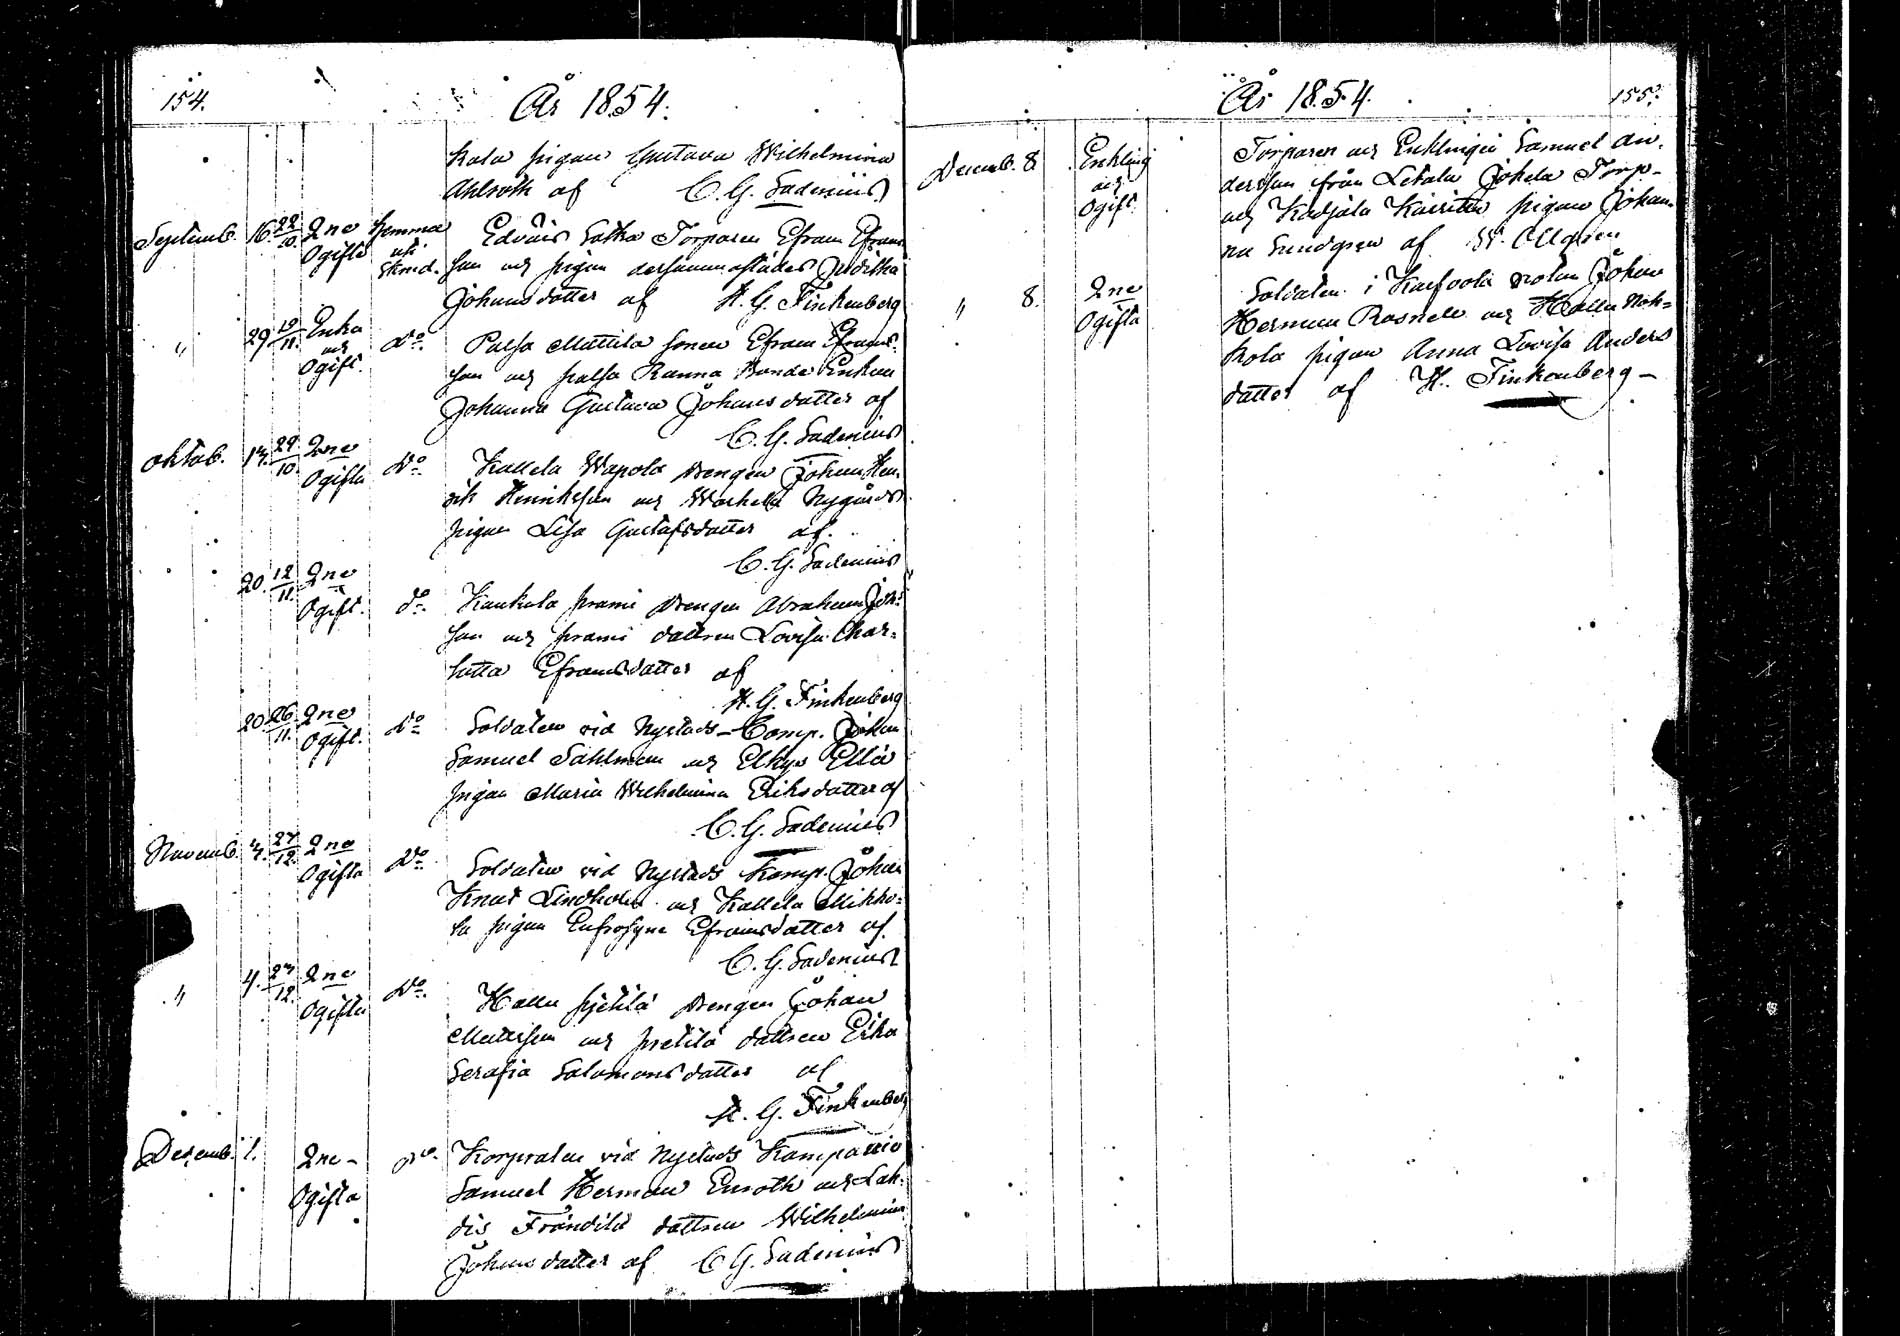 154.
År 1854.
kola pigan Gustava Wilhelmina
Ahlroth af C. G. Sadenius
Septemb. 16. 22/10. 2ne Ogifta Hemma uti Skmd. Edväis Satka Torparen Efraim Efraims
son och pigan dersammastädes Juditha
Johansdotter af H. G. Finkenberg
" 29 19/11. Enka och Ogift. Do. Palsa Mattila sonen Efraim Efraims
son och palsa Ranna Bonde Enkan
Johanna Gustava Johansdotter af
C. G. Sadenius
Oktob. 14. 29/10. 2ne Ogifta Do. Kallela Wapola Drengen Johan Hen
rik Henriksson och Warhela Nygårds
pigan Lisa Gustafsdotter af.
C. G. Sadenius
20. 12/11. 2ne Ogift. do. Kaukola prami Drengen Abraham Joh:
son och prami dottren Lovisa Char=
lotta Efraimsdotter af
H. G. Finkenberg
20. 26/11. 2ne Ogift. Do. Soldaten vid Nystads-Comp. Johan
Samuel Sahlman och Elkyo Ellä
pigan Maria Wilhelmina Eriksdotter af
C. G. Sadenius
Novemb. 4. 27/12. 2ne Ogifta Do. Soldaten vid Nystads Komp. Johan
Knut Lindholm och Kallela Mikko=
la pigan Eufrosyne Efraimsdotter af
C. G. Sadenius
" 4. 27/12. 2ne Ogifta Do. Hallu pietilä Drengen Johan
Mattsson och pietilä dottren Erika
Serafia Salomonsdotter af
H. G. Finkenberg
Decemb. 1. 2ne - Ogifta Do. Korpralen vid Nystads Kompanie
Samuel Herman Enroth och Lah.
dis Fröndilä dottren Wilhelmina
Johansdotter af C G. Sadenius
År 1854.
155.
Decemb. 8. Enkling och Ogift. Torparen och Enklingen Samuel An.
dersson från Letala Jokela Torp-
och Kadjala Kairiten pigan Johan-
na Sundgren af W. Ollgren
" 8. 2ne Ogifta Soldaten i Karfvola rotan Johan
Herman Rosnell och Hallu Nok=
kola pigan Anna Lovisa Anders
dotter af H. Finkenberg -